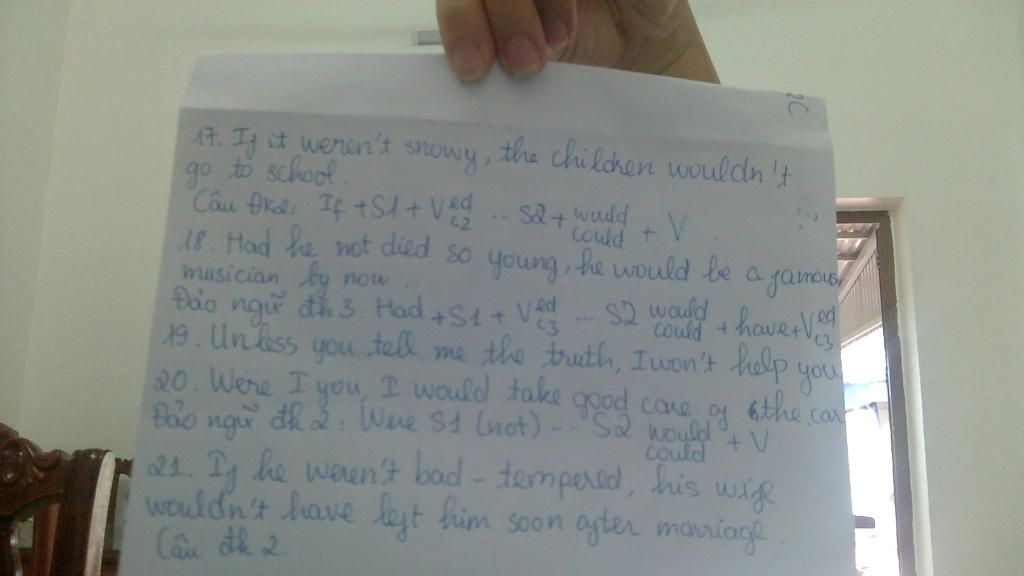 2C
17. If it weren't snowy, the children wouldn't
go to school.
Câu ĐK2: If + S1 + V ed c2 ... S2 + would could + V.
18. Had he not died so young, he would be a famous
musician by now..
Đảo ngữ đk 3: Had + S1 + V ed c3 .... S2 would could + have + V ed c3
19. Unless you tell me the truth, I won't help you
20. Were I you, I would take good care of the car
Đảo ngữ đk 2: Were S1 (not) ... S2 would could + V.
21. If he weren't bad - tempered, his wife
wouldn't have left him soon after marriage.
Câu đk 2.